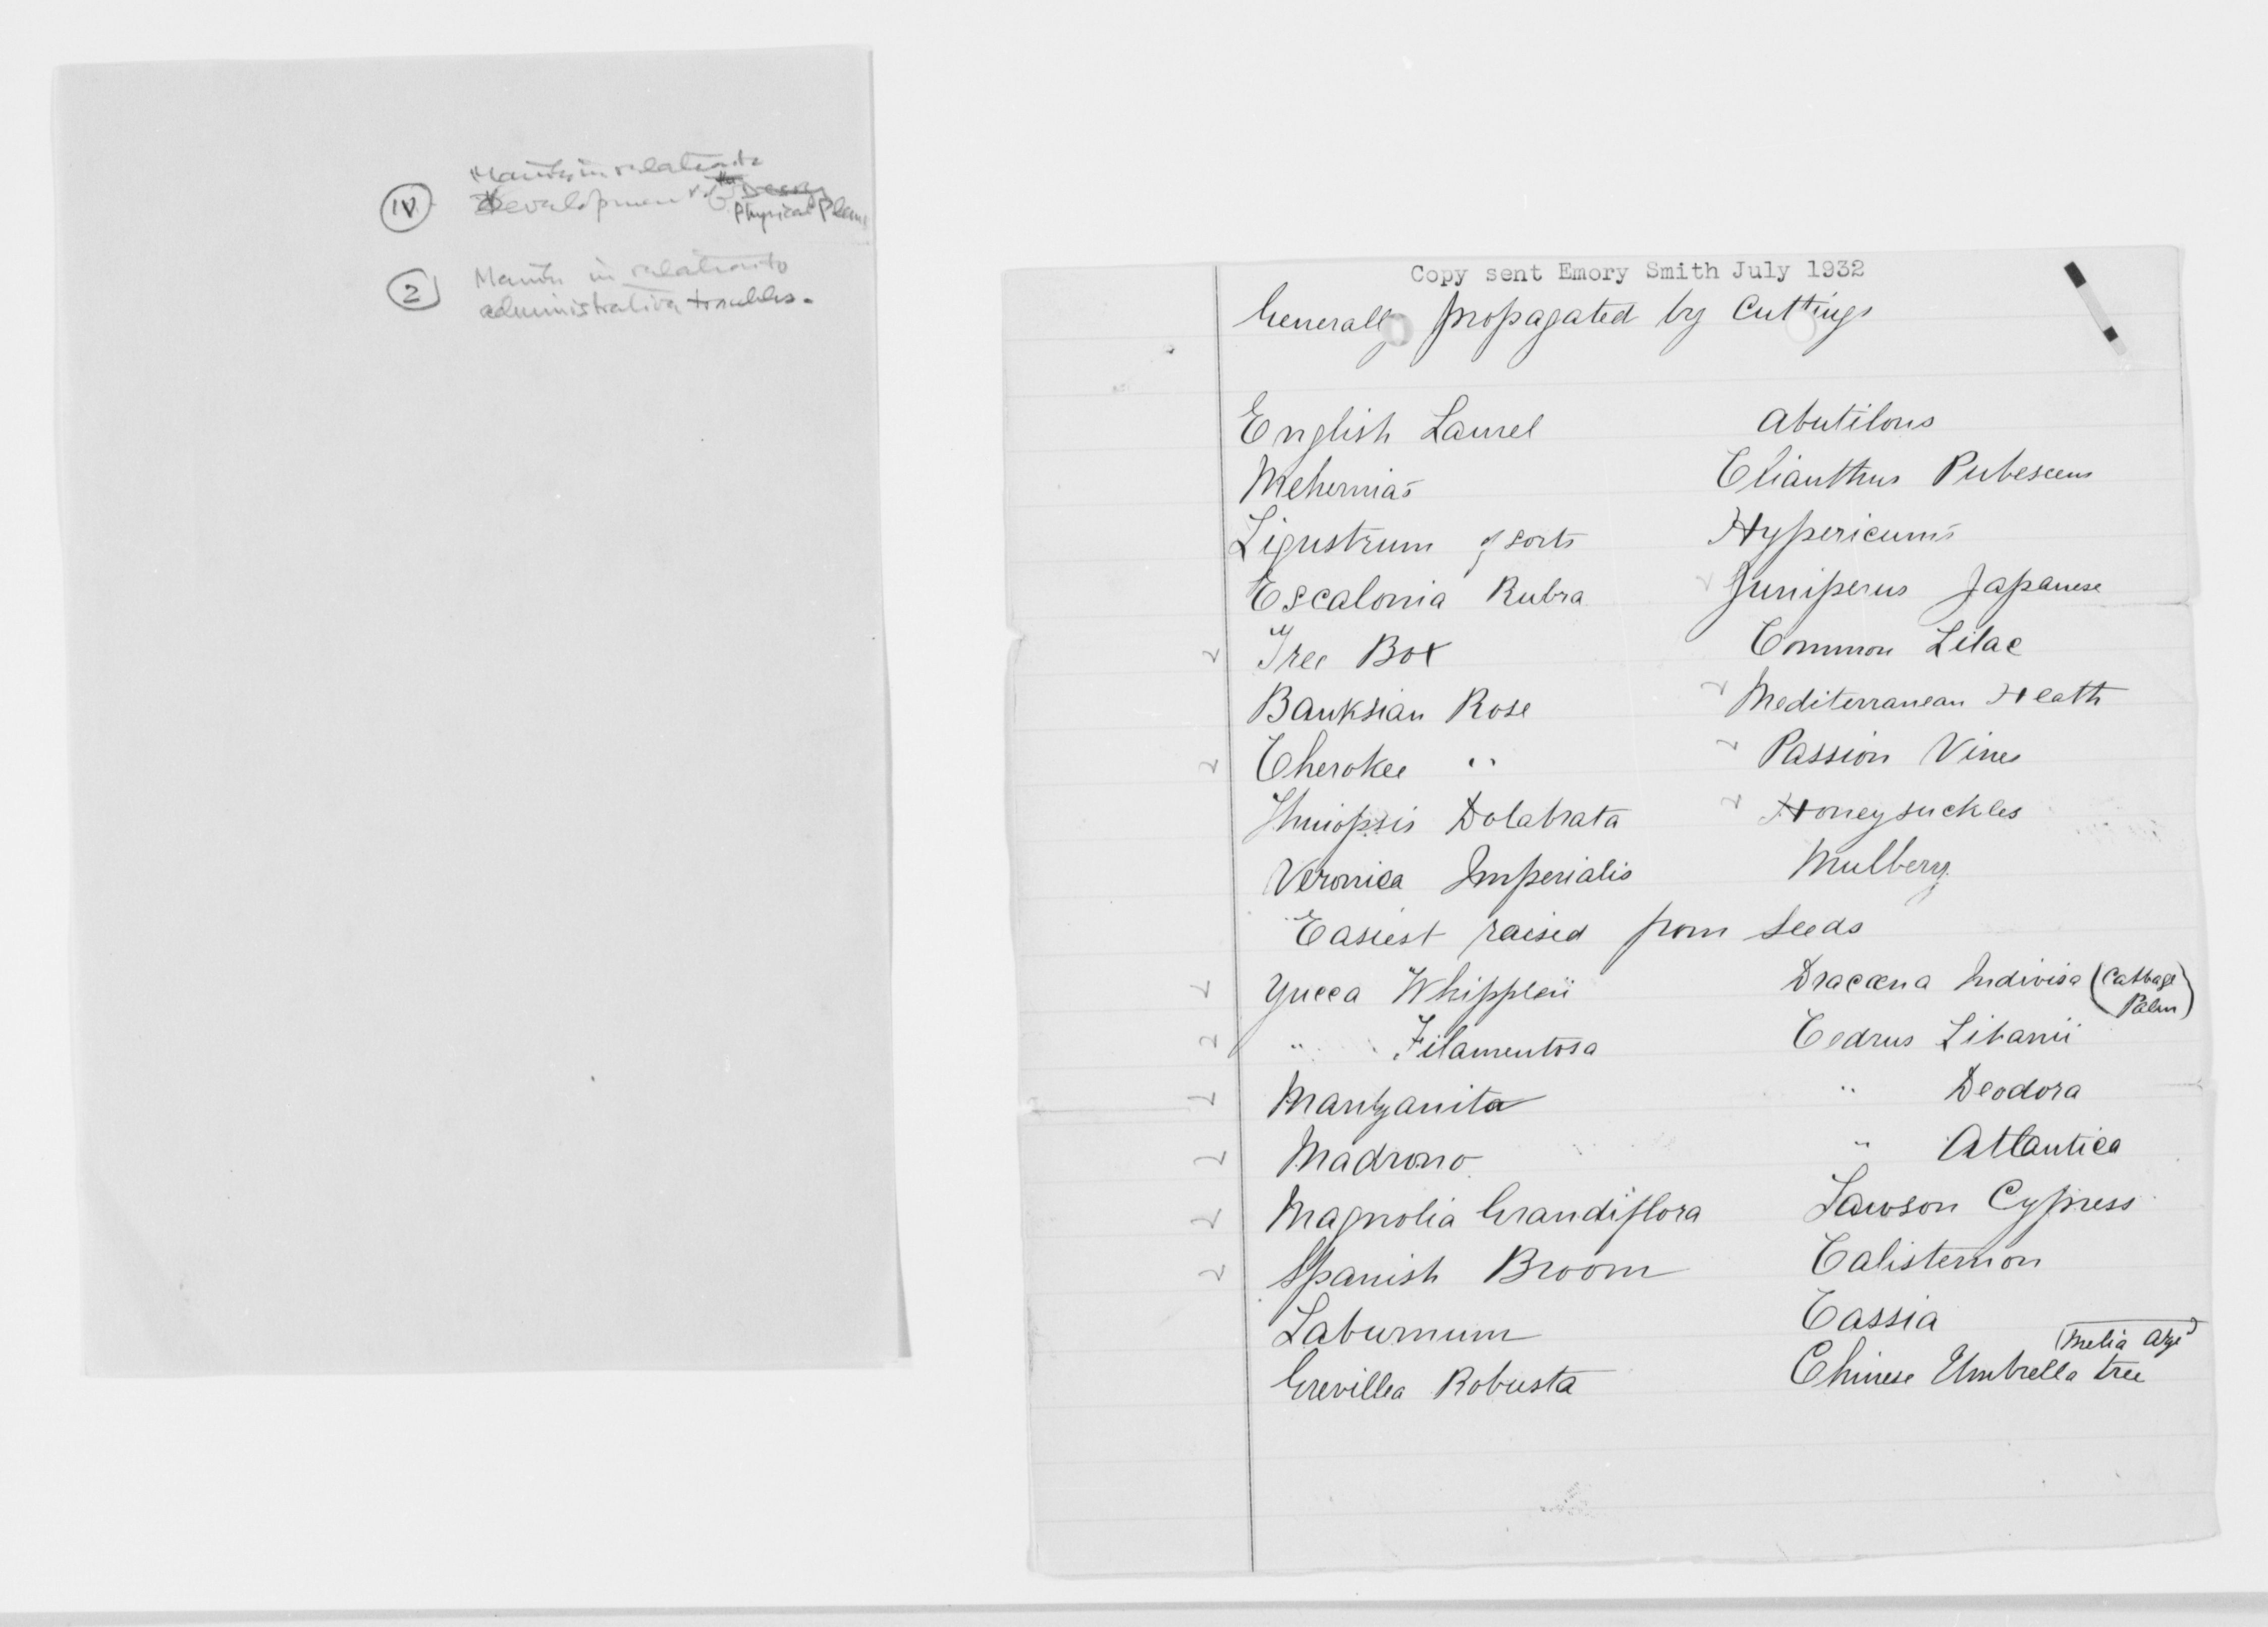 IV
in relation to
Development of the
Physical Plant
2
in relation to
administrative troubles.
Copy sent Emory Smith July 1932
Generally propagated by Cuttings
English Laurel
Abutilons
Mehernias
Clianthus Pubescens
Ligustrum of sorts
Hypericums
Escalonia Rubra
Juniperus Japanese
Tree Box
Common Lilac
Banksian Rose
Mediterranean Heath
Cherokee "
Passion Vines
Thuiopsis Dolabrata
Honeysuckles
Veronica Imperialis
Mulberry
Easiest raised from Seeds
Yucca Whippleii
Dracæna Indivisa (Cabbage
Palm)
" Filamentosa
Cedrus Libanii
Manzanita
" Deodora
Madrono
" Atlantica
Magnolia Grandiflora
Lawson Cypress
Spanish Broom
Calistemon
Laburnum
Cassia
(Melia Aze)
Grevillea Robusta
Chinese Umbrella tree